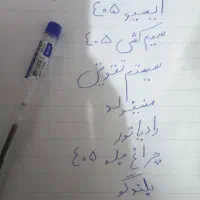 ایسیو ۴۰۵
سیم کشی ۴۰۵
سیستم تقویتی
منیفولد
رادیاتور
چراغ جلو ۴۰۵
بلندگو